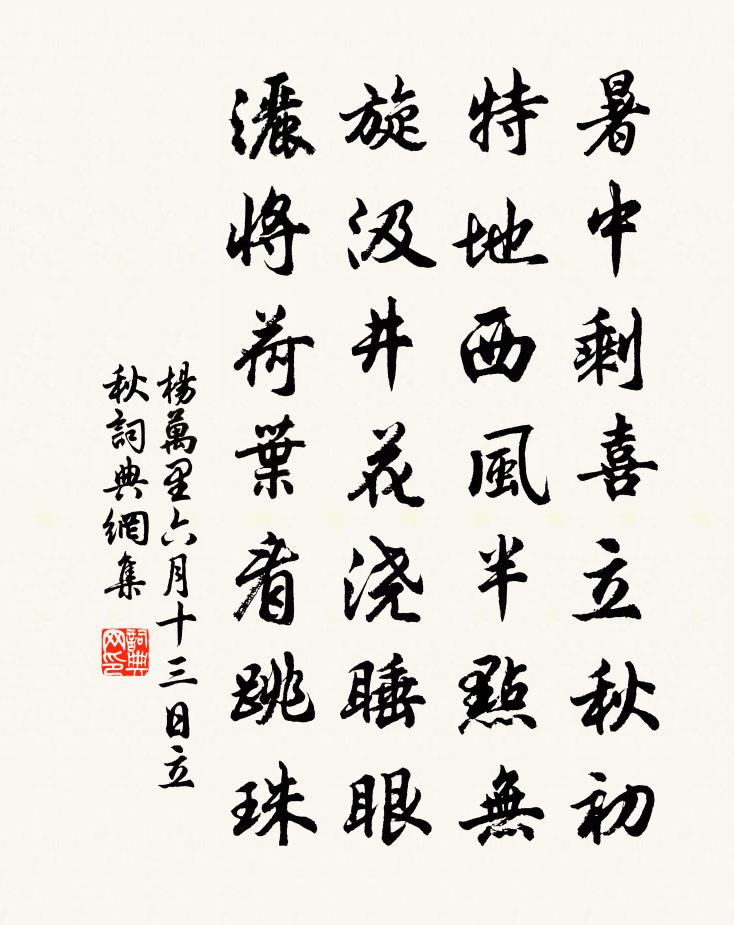 暑中剩喜立秋初
特地西風半點無
旋汲井花浇睡眼
灑將荷葉看跳珠
楊萬里六月十三日立
秋詞典網集
詞典网印